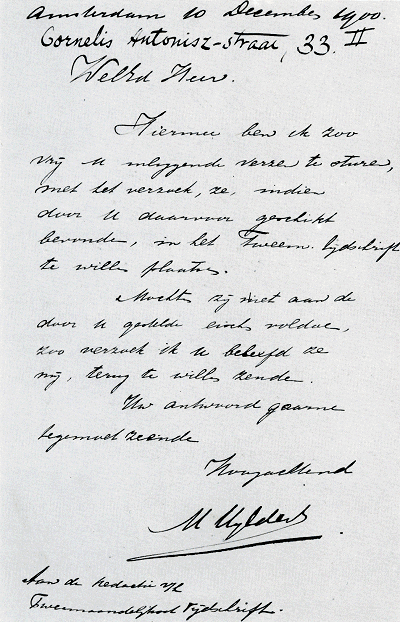 Amsterdam 10 December 1900.
Cornelis Antonisz-straat, 33. II
WelEd Heer.
Hiermee ben ik zoo
vrij u inliggende verzen te sturen,
met het verzoek, ze, indien
door U daarvoor geschikt
bevonden, in het Tweem. tijdschrift
te willen plaatsen.
Mochten zij niet aan de
door u gestelde eischen voldoen,
zoo verzoek ik u beleefd ze
mij, terug te willen zenden.
Uw antwoord gaarne
tegemoet ziende
Hoogachtend
M Uyldert
Aan de Redactie v/h
Tweemaandelijksch Tijdschrift.